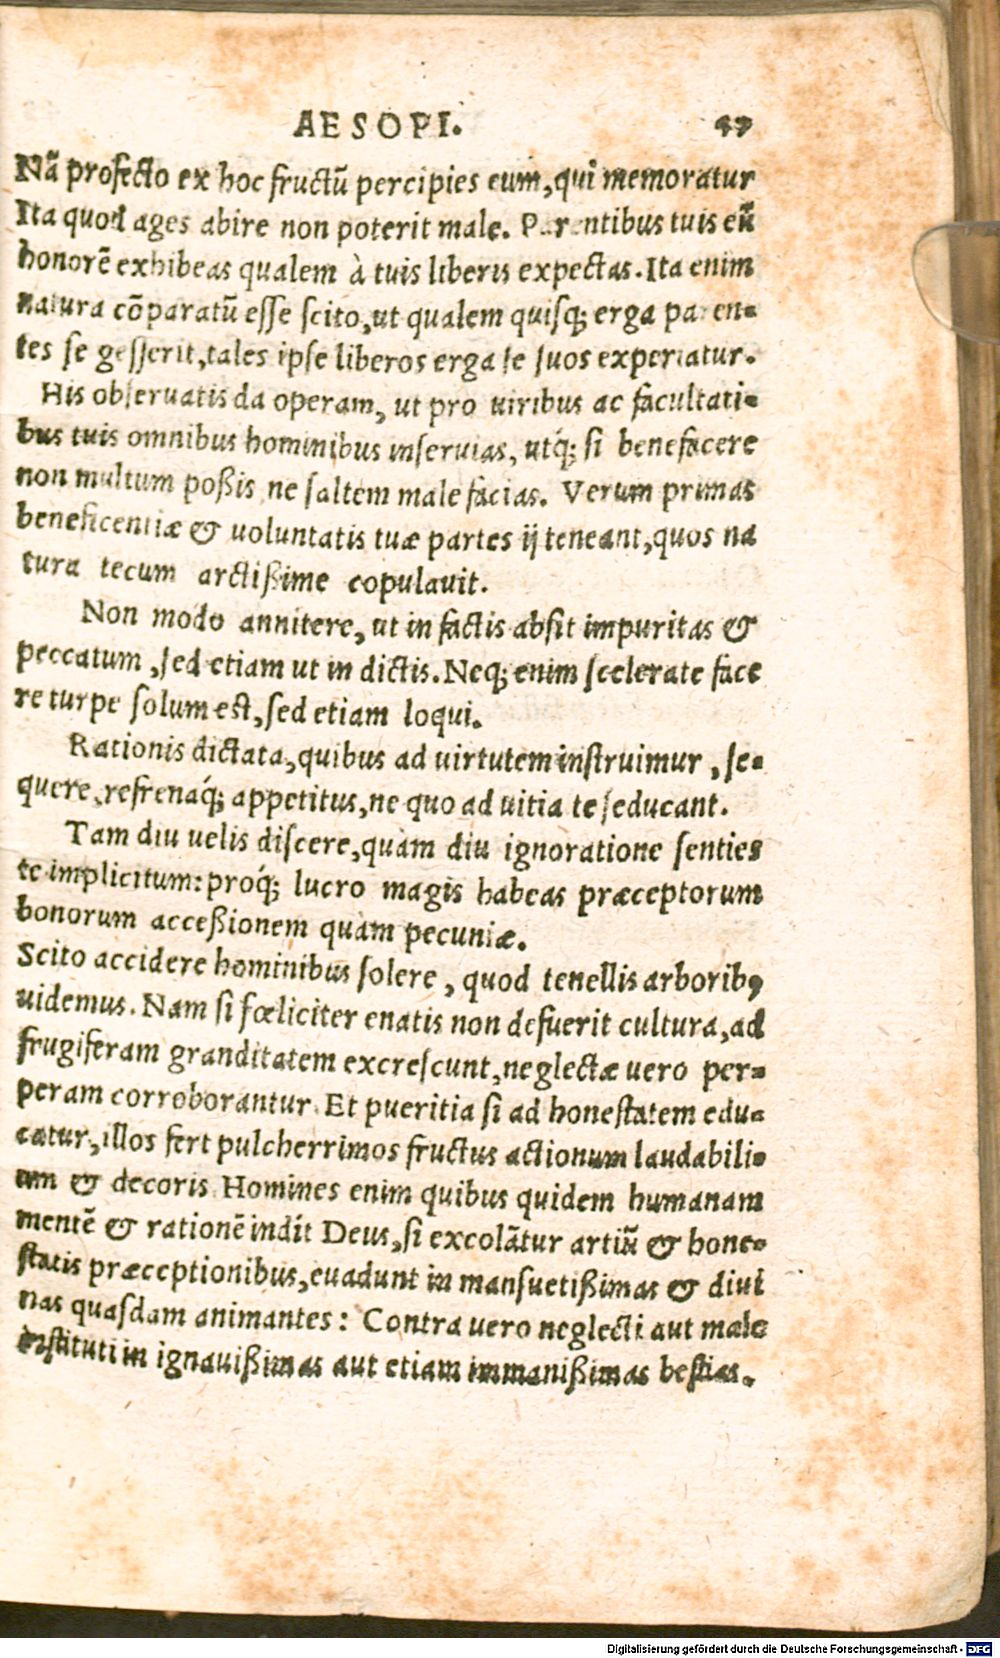 AESOPI. 47
Nã profecto ex hoc fructũ percipies eum, qui memoratur
Ita quod ages abire non poterit male. Parentibus tuis eũ
honorẽ exhibeas qualem à tuis liberis expectas. Ita enim
natura cõparatũ esse scito, ut qualem quisq; erga paren-
tes se gesserit, tales ipse liberos erga se suos experiatur.
His obseruatis da operam, ut pro uiribus ac facultati-
bus tuis omnibus hominibus inseruias, utq́; si benefacere
non multum poßis ne saltem male facias. Verum primas
beneficentiæ & uoluntatis tuæ partes ij teneant, quos na
tura tecum arctißime copulauit.
Non modo annitere, ut in factis absit impuritas &
peccatum, sed etiam ut in dictis. Neq; enim scelerate face
re turpe solum est, sed etiam loqui.
Rationis dictata, quibus ad uirtutem instruimur, se-
quere, refrenaq́; appetitus, ne quo ad uitia te seducant.
Tam diu uelis discere, quam diu ignoratione senties
te implicitum: proq́; lucro magis habeas præceptorum
bonorum acceßionem quam pecuniæ.
Scito accidere hominibus solere, quod tenellis arborib9
uidemus. Nam si fœliciter enatis non defuerit cultura, ad
frugiferam granditatem excrescunt, neglectæ uero per-
peram corroborantur. Et pueritia si ad honestatem edu-
catur, illos fert pulcherrimos fructus actionum laudabili-
um & decoris. Homines enim quibus quidem humanam
mentẽ & rationẽ indit Deus, si excolãtur artiũ & hone-
statis præceptionibus, euadunt in mansuetißimas & diui
nas quasdam animantes: Contra uero neglecti aut male
instituti in ignauißimas aut etiam immanißimas bestias.
Digitalisierung gefördert durch die Deutsche Forschungsgemeinschaft - DFG